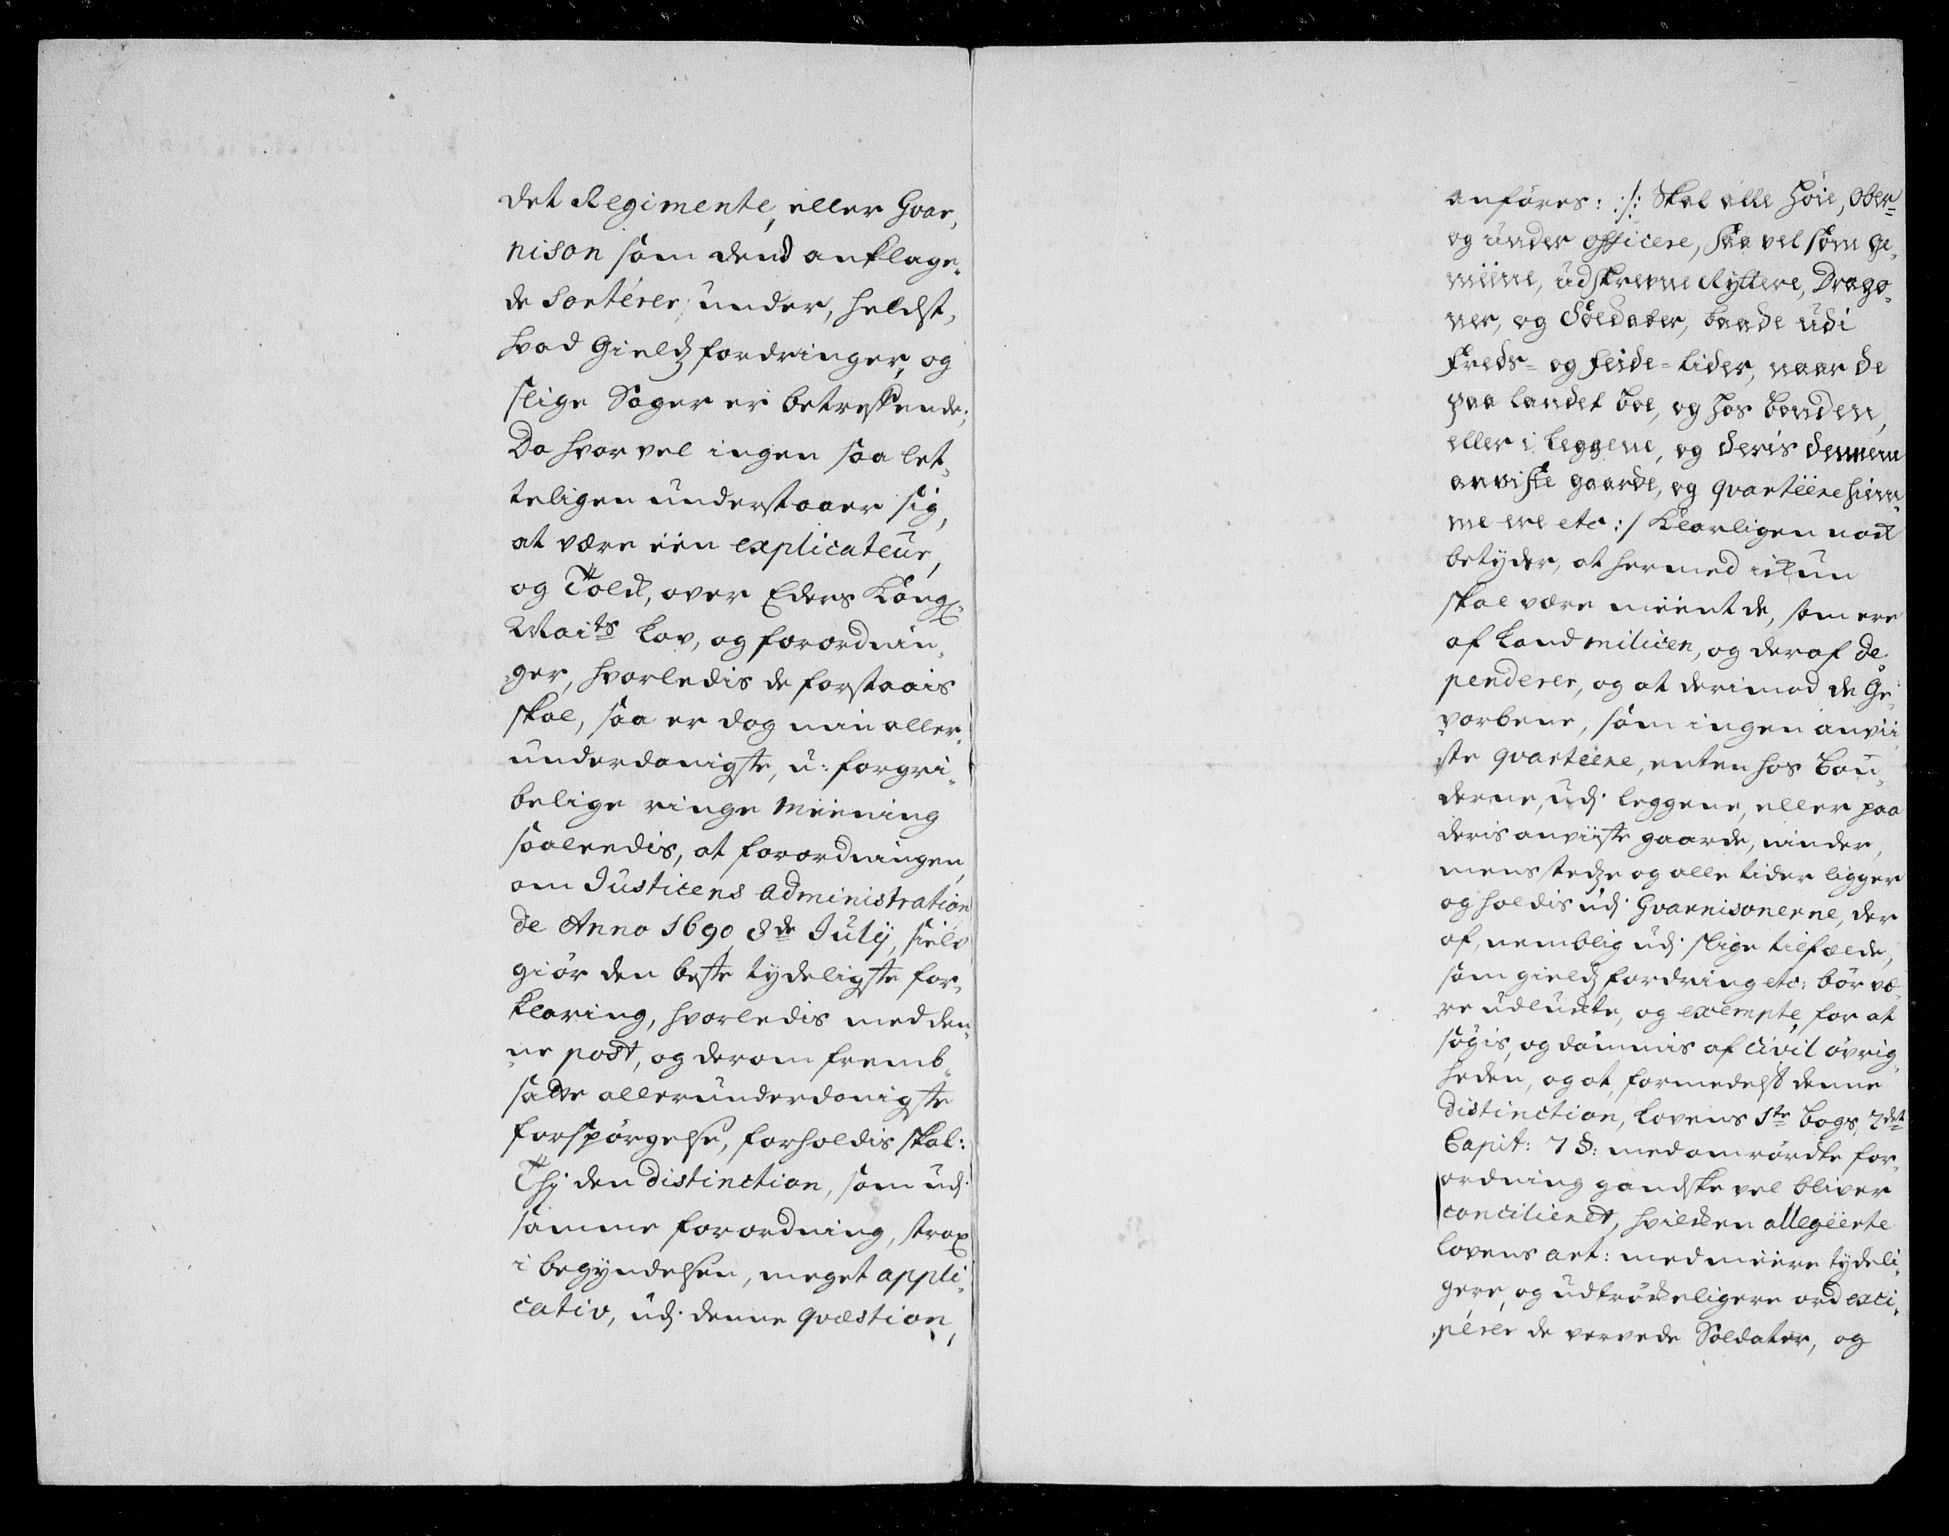 det Regimente, eller Gvar,
nison som dend anklage,
de Sortérer, under, heldst,
hvad Gieldz fordringer, og
slige Sager er betreffende;
Da hvor vel ingen saa let,
teligen understaaer sig,
at være een explicateur,
og Tolck, over Eders Kongl:
Maits Lov, og forordnin,
ger, hvorledis de forstaais
skal, saa er dog min aller,
underdanigste, u: forgri,
belige ringe Meening
saaleedis, at forordningen
om Justicens Administration
de Anno 1690, 8de July, sielv
giör den beste tydeligste for,
klaring, hvorledis med den,
ne post, og derom fremb,
satte allerunderdanigste
forspörgelse, forholdis skal:
Thj den distinction, som udj
samme forordning, strax
i begyndelsen, meget appli,
cativ, udj denne qvæstion,
anföres: :/: Skal alle Höie, Ober=
og under officere, saa vel som ge,
meene, udskrevne Ryttere, Drago,
ner, og Soldater, baade udi
Freds= og feide=tider, naar de
paa landet boe, og hos bonden,
eller i leggene, og deris dennem
anviste gaarde, og qvarteere hiem,
me ere etc :/ Klarligen nock
betyder, at hermed ickun
skal være meent de, som ere
af Land milicen, og deraf de,
penderer, og at derimod de Ge,
vorbene, som ingen anvii,
ste qvarteere, enten hos Bøn,
derne, udj leggene, eller paa
deris anviiste gaarde, ninder,
mensstedze og alle tider ligger
og holdis udj Gvarnisonerne, der
af, nemblig udj slige tilfælde,
som gieldz fordring etc: bör væ,
re udluckte, og exempte, for at
sögis, og dömmis af civil övrig,
heden, og at, formedelst denne
distinction, Lovens 1te bogs, 2det
Capit: 7 §: med omrördte for,
ordning gandske vel bliver
concilieret, hvilcken allegeerte
Lovens art: med meere tydeli,
gere, og udtröckeligere ord exci,
pérer de vervede Soldater, og